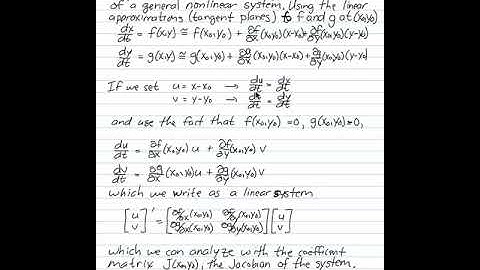 of a general nonlinear system. Using the linear
approximations (tangent planes) to f and g at (x₀,y₀)
dx/dt = f(x,y) ≅ f(x₀,y₀) + ∂f/∂x(x₀,y₀)(x-x₀) + ∂f/∂y(x₀,y₀)(y-y₀)
dy/dt = g(x,y) ≅ g(x₀,y₀) + ∂g/∂x(x₀,y₀)(x-x₀) + ∂g/∂y(x₀,y₀)(y-y₀)
If we set u = x-x₀ → du/dt = dx/dt
v = y-y₀ → dv/dt = dy/dt
and use the fact that f(x₀,y₀)=0, g(x₀,y₀)=0,
du/dt = ∂f/∂x(x₀,y₀)u + ∂f/∂y(x₀,y₀)v
dv/dt = ∂g/∂x(x₀,y₀)u + ∂g/∂y(x₀,y₀)v
which we write as a linear system
[u v]' = [∂f/∂x(x₀,y₀) ∂f/∂y(x₀,y₀) ∂g/∂x(x₀,y₀) ∂g/∂y(x₀,y₀)] [u v]
which we can analyze with the coefficient
matrix J(x₀,y₀), the Jacobian of the system.